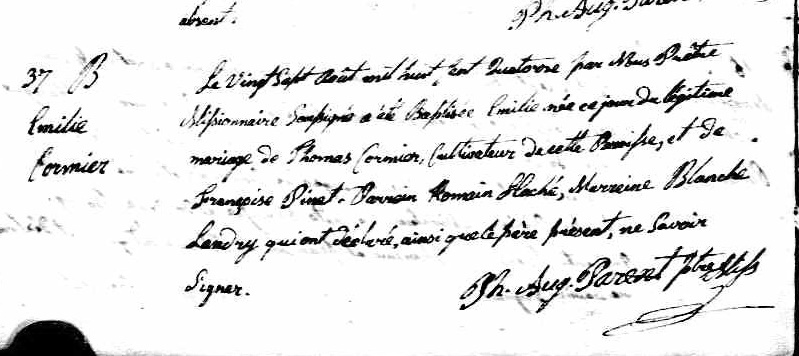 absent.
Ph. Aug. Parent
37 B
Emilie
Cormier
Le Vingt Sept Août mil huit cent Quatorze par Nous Prêtre
Missionnaire Soussigné a été Baptisée Emilie née ce jour du légitime
mariage de Thomas Cormier, Cultivateur de cette Paroisse, et de
Françoise Pinet. Parrain Romain Haché, Marraine Blanche
Landry qui ont déclaré, ainsi que le père présent, ne Savoir
Signer.
Ph. Aug. Parent ptre Miss